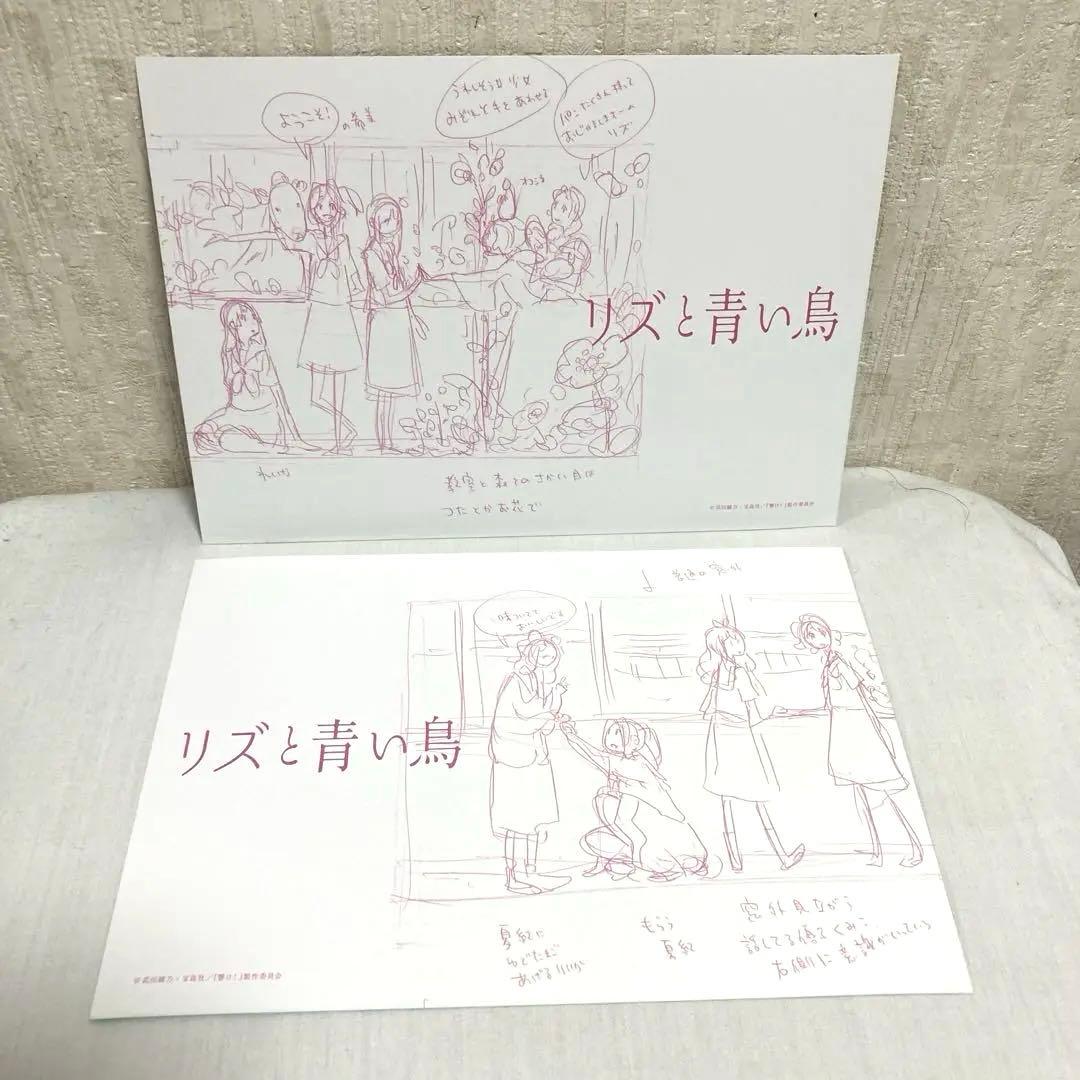 ようこそ!
の希美
うれしそうな少女
みぞれと手をあわせる
パンたくさん持って
おじゃましまーす
リズ
リズと青い鳥
れいな
教室と森とのさかい目は
つたとかお花で
©武田綾乃・宝島社/『響け!』製作委員会
普通の窓外
味ついてて
おいしいです
リズと青い鳥
夏紀に
ゆでたまご
あげる
もらう
夏紀
窓外見ながら
話してる優子
右側に意識がいっている
©武田綾乃・宝島社/『響け!』製作委員会